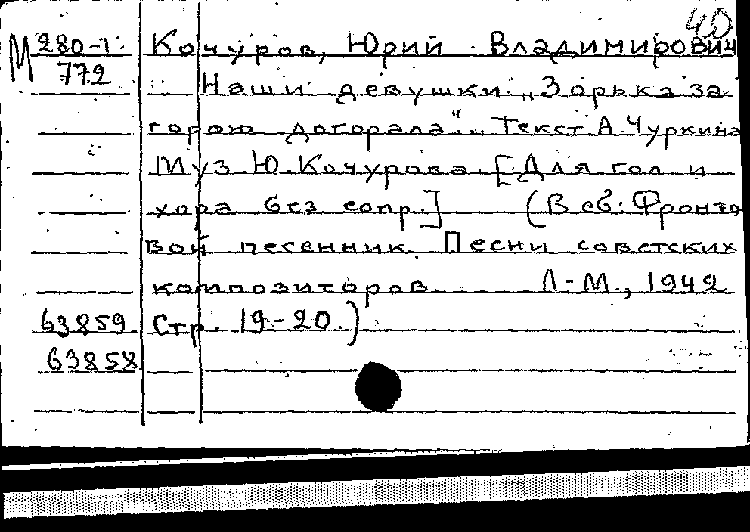 40
М 280-1 Кочуров, Юрий Владимирович
772
Наши девушки. „Зорька за
горою догорала". Текст А. Чуркина
Муз Ю. Кочурова. [Для гол и
хора без сопр.] (В сб: Фронто
вой песенник. Песни советских
композиторов. Л-М., 1942
63859 Стр. 19-20.)
63858